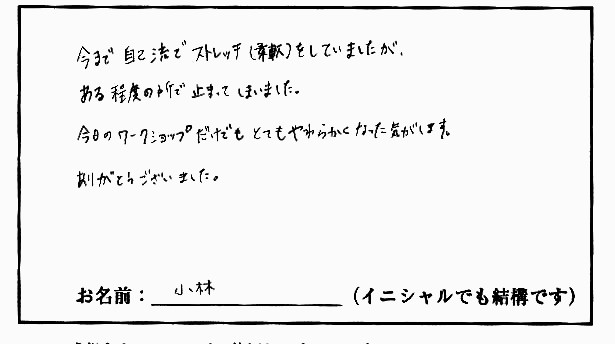 今まで自己流でストレッチ(柔軟)をしていましたが、
ある程度の所で止まってしまいました。
今日のワークショップだけでもとてもやわらかくなった気がします。
ありがとうございました。
お名前：小林（イニシャルでも結構です）